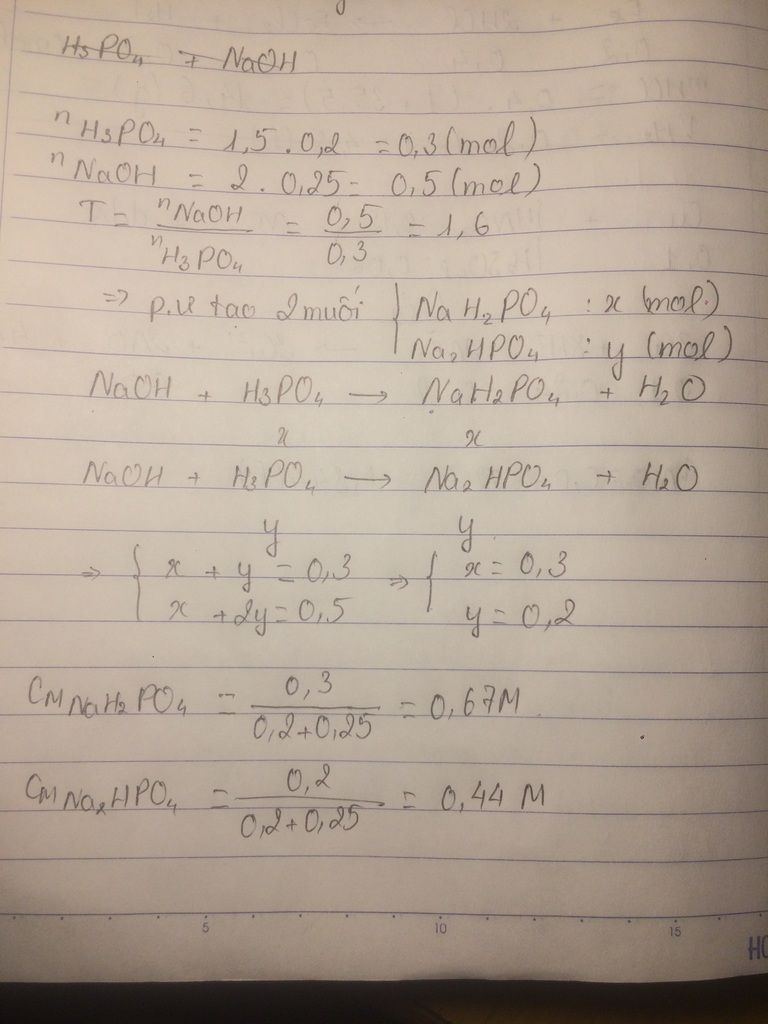 H3PO4 + NaOH
nH3PO4 = 1,5 . 0,2 = 0,3 (mol)
nNaOH = 2 . 0,25 = 0,5 (mol)
T = nNaOH / nH3PO4 = 0,5 / 0,3 = 1,6
=> p.ư tạo 2 muối { NaH2PO4 : x (mol)
Na2HPO4 : y (mol)
NaOH + H3PO4 → NaH2PO4 + H2O
x x
NaOH + H3PO4 → Na2HPO4 + H2O
y y
=> { x + y = 0,3 => { x = 0,3
x + 2y = 0,5 y = 0,2
CM NaH2PO4 = 0,3 / 0,2+0,25 = 0,67M
CM Na2HPO4 = 0,2 / 0,2+0,25 = 0,44 M
5 10 15